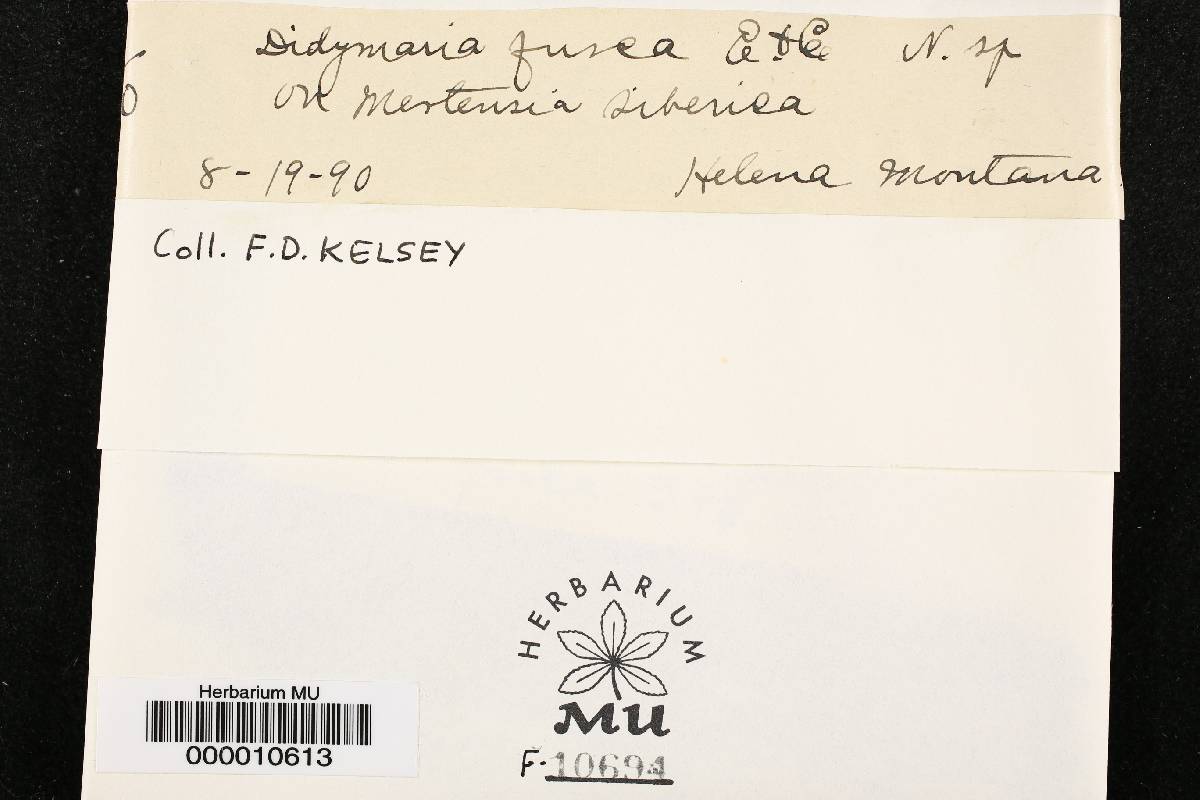 Didymaria fusca E. & E. N. sp
on Mertensia Siberica
8-19-90 Helena Montana
Coll. F.D. KELSEY
HERBARIUM
MU
F-10694
Herbarium MU
000010613